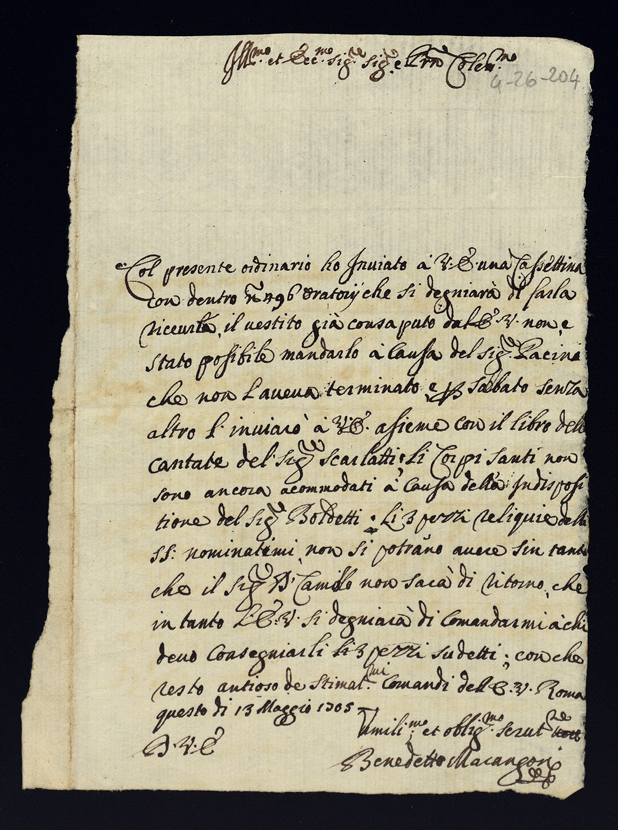 Ill.mo et Ecc.mo Sig.re Sig.re e Prn Colen.mo
4-26-204
Col presente ordinario ho Inuiato à V: E: una Cassettina
con dentro n 496 oratorij che si degniarà di farla
riceurla, il uestito già consaputo dal E: V: non, e
stato possibile mandarlo à Causa del sig.r Pacini
che non l aueua terminato e p Sabato senza
altro l' inuiarò à V: E: assieme con il libro delle
cantate del sig.r Scarlatti; li Corpi santi non
sono ancora acommodati à Causa della Indisposi
tione del sig.r Boldetti; li 3 pezzi reliquie delli
ss: nominatemi, non si potrano auere sin tanto
che il sig.r D: Camillo non sarà di ritorno, che
in tanto L' E: V: si degniarà di Comandarmi à chi
deuo Consegniarli li 3 pezzi sudetti; con che
resto antioso de Stimat.mi Comandi dell E: V: Roma
questo di 13 Maggio 1705
D: V: E:
Vmili.mo et oblig.mo seruit.re
Benedetto Macangoni